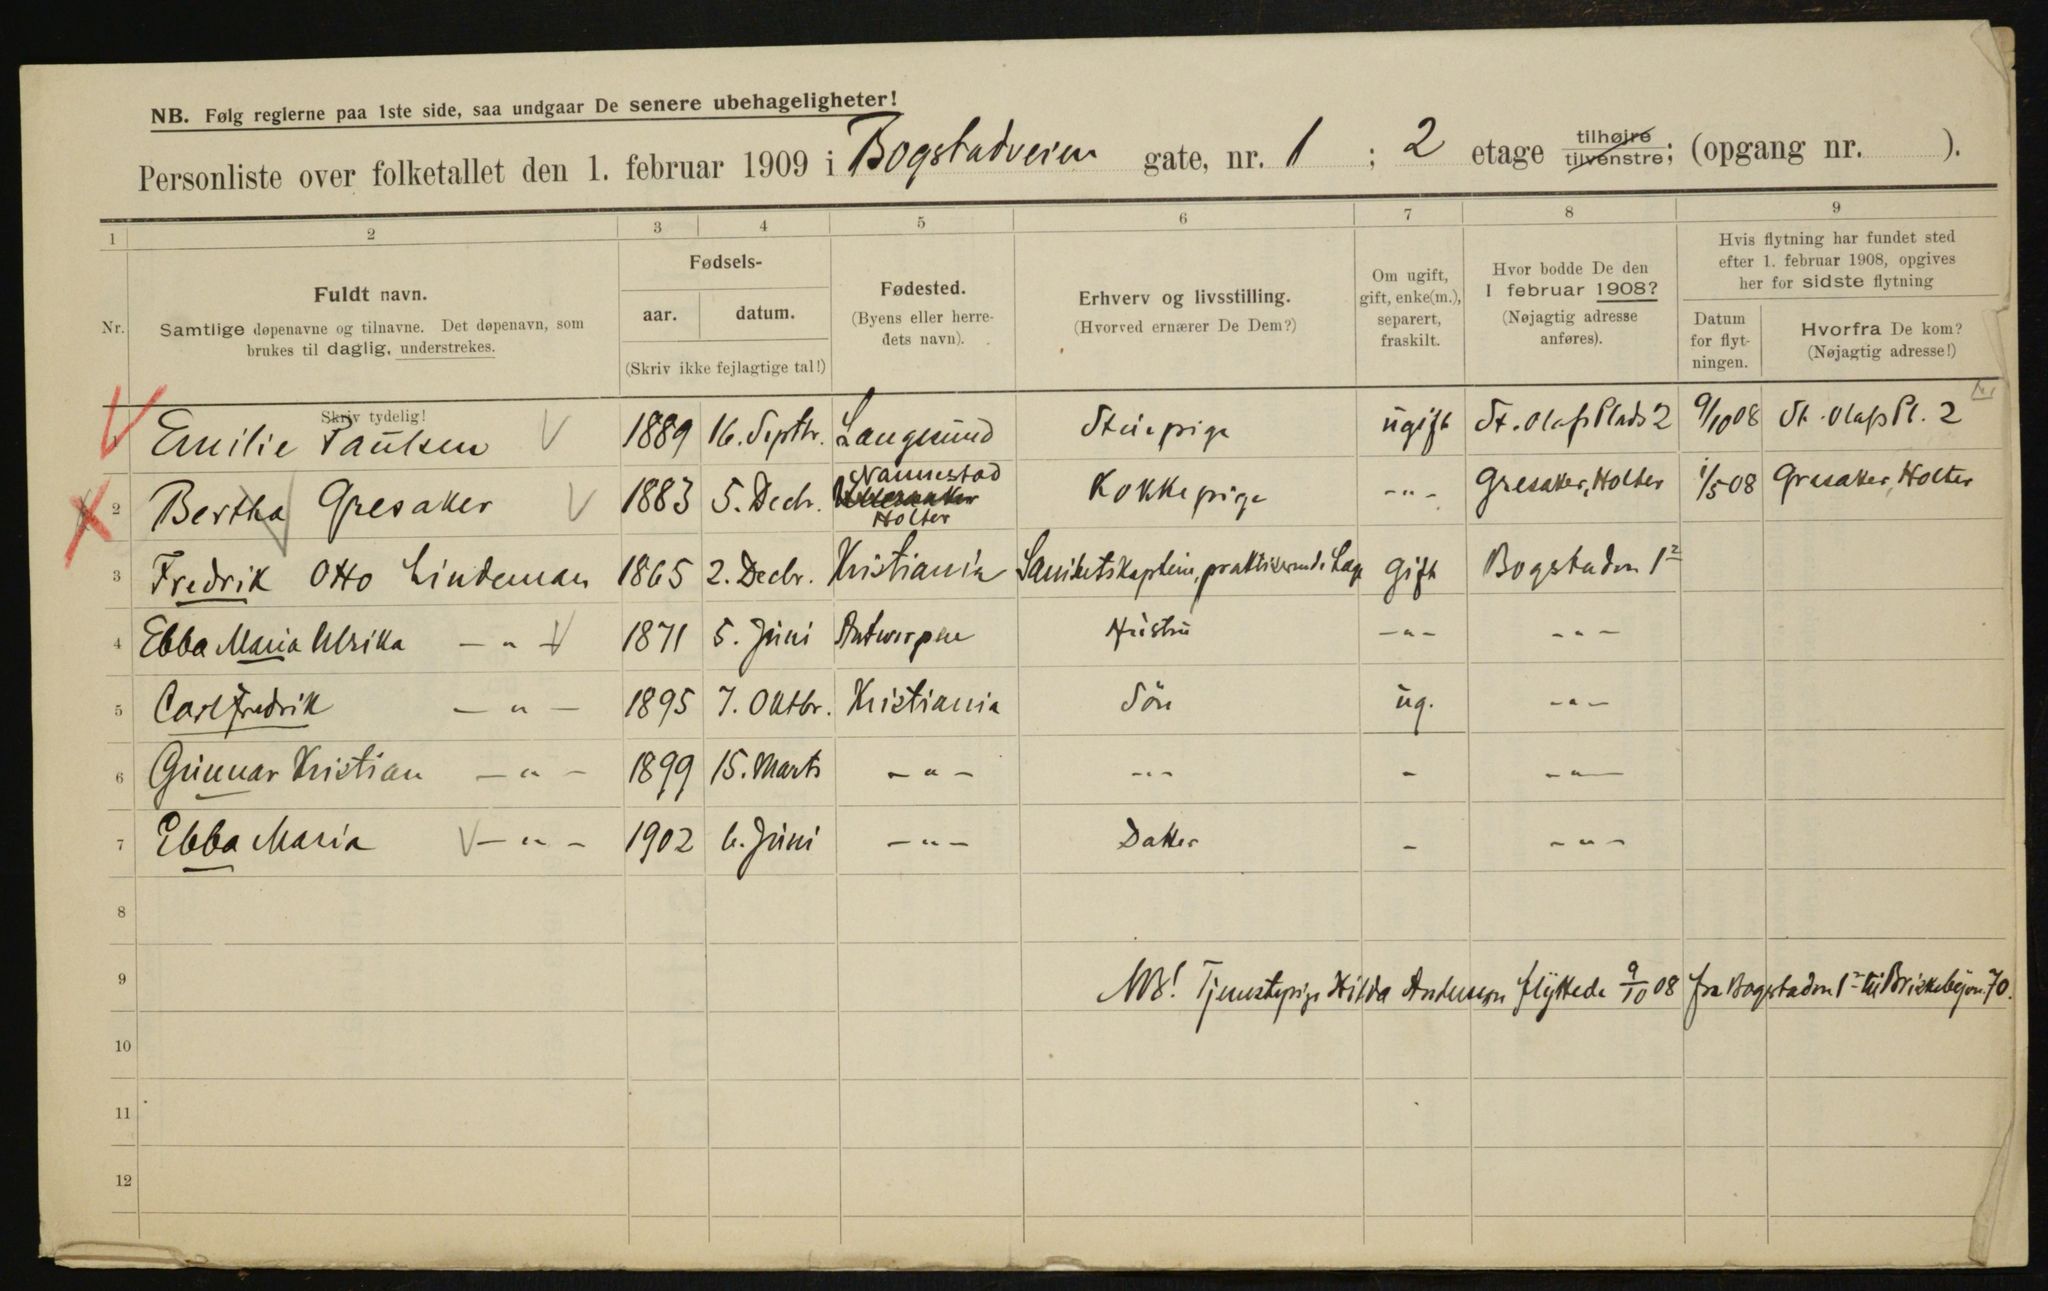 NB. Følg reglerne paa 1ste side, saa undgaar De senere ubehageligheter!
Personliste over folketallet den 1. februar 1909 i Bogstadveien gate, nr. 1 ; 2 etage tilhøjre tilvenstre; (opgang nr. ).
1 2 3 4 5 6 7 8 9
Nr.
Fuldt navn.
Samtlige døpenavne og tilnavne. Det døpenavn, som
brukes til daglig, understrekes.
Skriv tydelig!
Fødsels-
aar. datum.
(Skriv ikke fejlagtige tal!)
Fødested.
(Byens eller herre-
dets navn).
Erhverv og livsstilling.
(Hvorved ernærer De Dem?)
Om ugift,
gift, enke(m.),
separert,
fraskilt.
Hvor bodde De den
1 februar 1908?
(Nøjagtig adresse
anføres).
Hvis flytning har fundet sted
efter 1. februar 1908, opgives
her for sidste flytning
Datum
for flyt-
ningen.
Hvorfra De kom?
(Nøjagtig adresse!)
Emilie Paulsen 1889 16. Septbr. Langesund Stuepige ugift St. Olafs Plads 2 9/10 08 St. Olafs Pl. 2
2 Bertha Gresaker 1883 5. Decbr. Nannestad Holter Kokkepige -"- Gresaker, Holter 1/5 08 Gresaker, Holter
3 Fredrik Otto Lindeman 1865 2. Decbr. Kristiania Sanitetskaptein, praktiserende Læge gift Bogstadvn 1²
4 Ebba Maria Ulrika -"- 1871 5. Juni Antwerpen Hustru -"- -"-
5 Carl Fredrik -"- 1895 7. Oktbr. Kristiania Søn ug. -"-
6 Gunnar Kristian -"- 1899 15. Marts -"- -"- - -"-
7 Ebba Maria -"- 1902 6. Juni -"- Datter - -"-
8
9 NB! Tjenestepige Hilda Andersen flyttede 9/10 08 fra Bogstadvn 1² til Briskebyvn. 70.
10
11
12